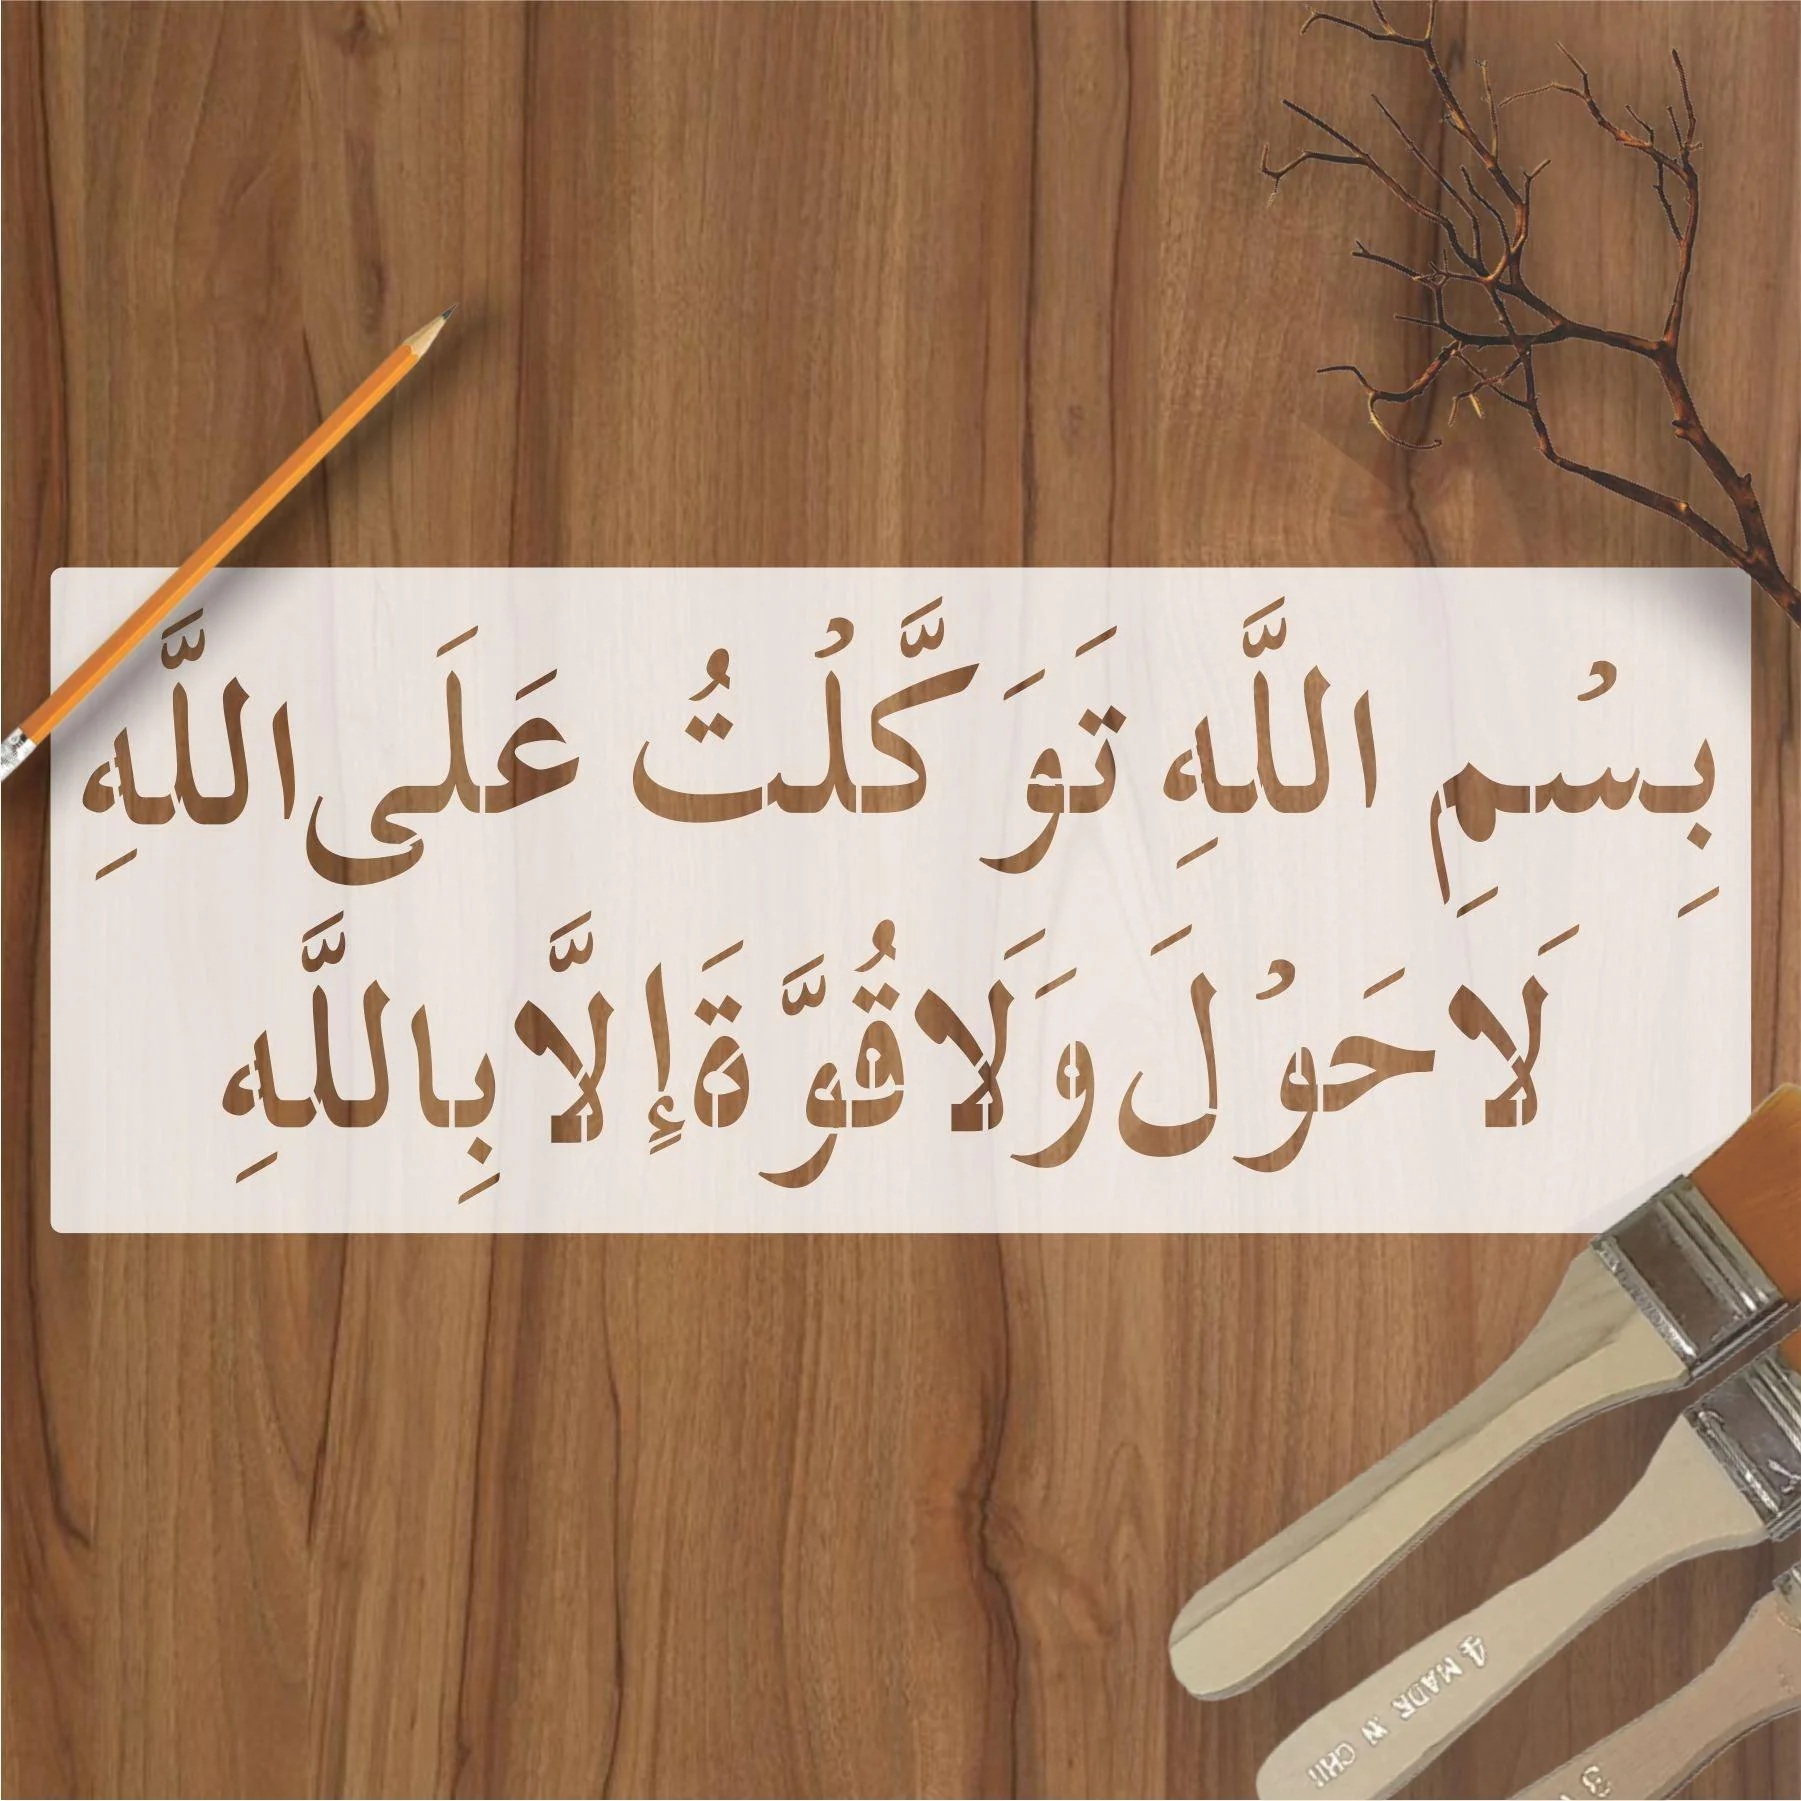 بِسْمِ اللَّهِ تَوَ كَّلْتُ عَلَى اللَّهِ
لَا حَوْلَ وَلَا قُوَّةَ إِلَّا بِاللَّهِ
4 MADE IN CHI
3